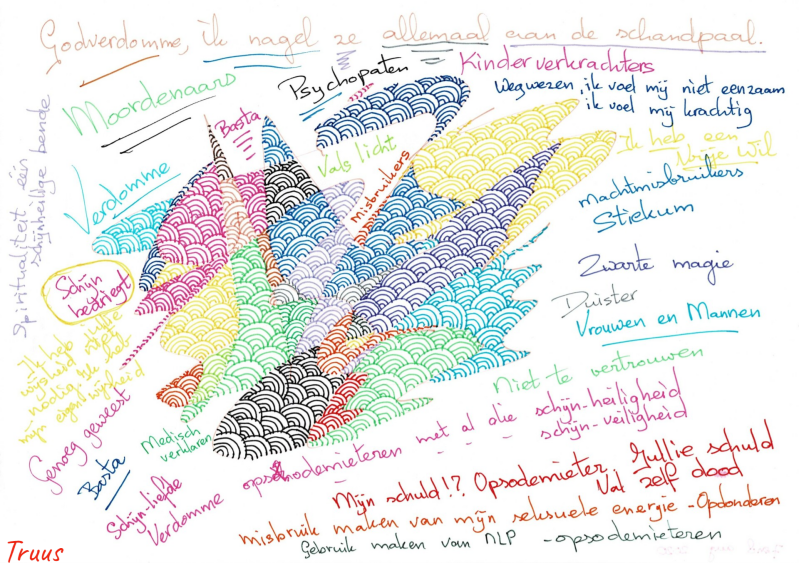 Godverdomme, ik nagel ze allemaal aan de schandpaal.
Kinderverkrachters
Psychopaten
Moordenaars
Basta
Wegwezen, ik voel mij niet eenzaam
ik voel mij krachtig
Vals licht
Misbruikers
Ik heb een
Vrije Wil
Spiritualiteit één
schijnheilige bende
Verdomme
machtmisbruikers
Stiekum
Schijn
bedriegt
Zwarte magie
Duister
Vrouwen en Mannen
Ik heb jullie
wijsheid niet
nodig. Ik heb
mijn eigen wijsheid
Niet te vertrouwen
Genoeg geweest
Medisch
verklaren
Basta
opsodemieteren met al die schijn-heiligheid
schijn-veiligheid
Schijn-liefde
Verdomme
Mijn schuld!? Opsodemieter Jullie schuld
Val zelf dood
misbruik maken van mijn seksuele energie - Opdonderen
Gebruik maken van NLP - opsodemieteren
Truus